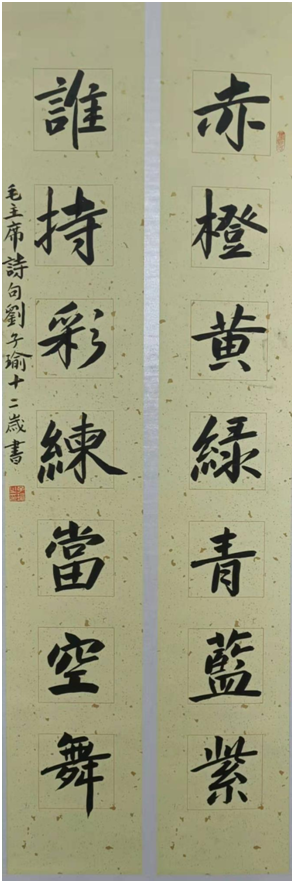 赤橙黄緑青藍紫
誰持彩練當空舞
毛主席詩句劉子瑜十二歲書